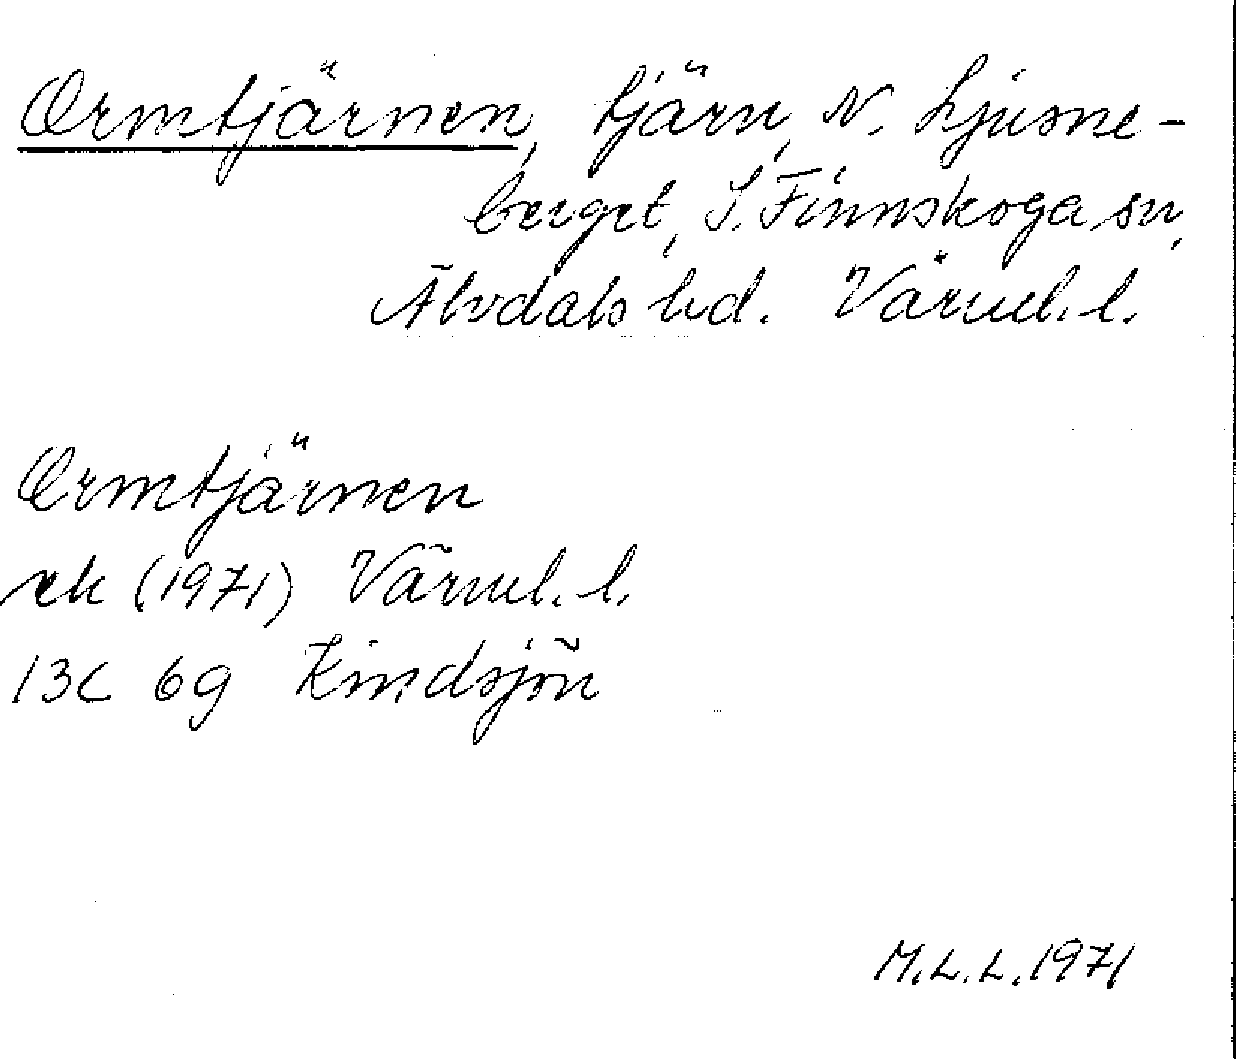 Ormtjärnen, tjärn, N. Ljusne-
berget, S. Finnskoga sn,
Älvdals hd. Värml. l.
Ormtjärnen
ek (1971) Värml. l.
13C 6g Kindsjön
M.L.L. 1971